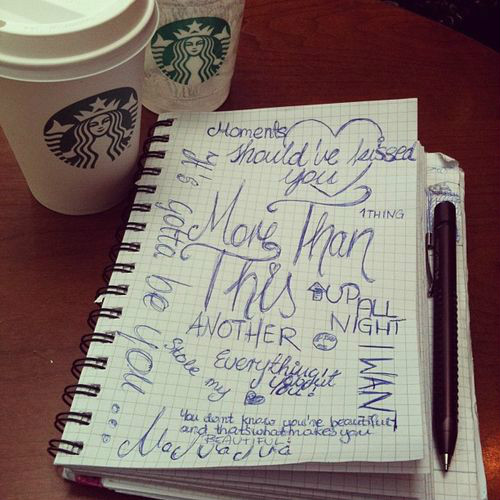 Moments
should've kissed
you
It's gotta be you...
1THING
More Than
This
UP ALL
NIGHT
ANOTHER
I WANT
Stole my
Everything
about
you!
You don't know you're beautiful!
and that's what makes you
BEAUTIFUL!
Na Na Na